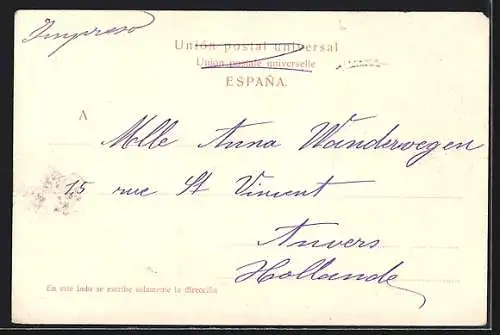 Impreso
Unión postal universal
Union postale universelle
ESPAÑA.
A
Mlle Anna Wanderwegen
15 rue St Vincent
Anvers
Hollande
En este lado se escribe solamente la dirección